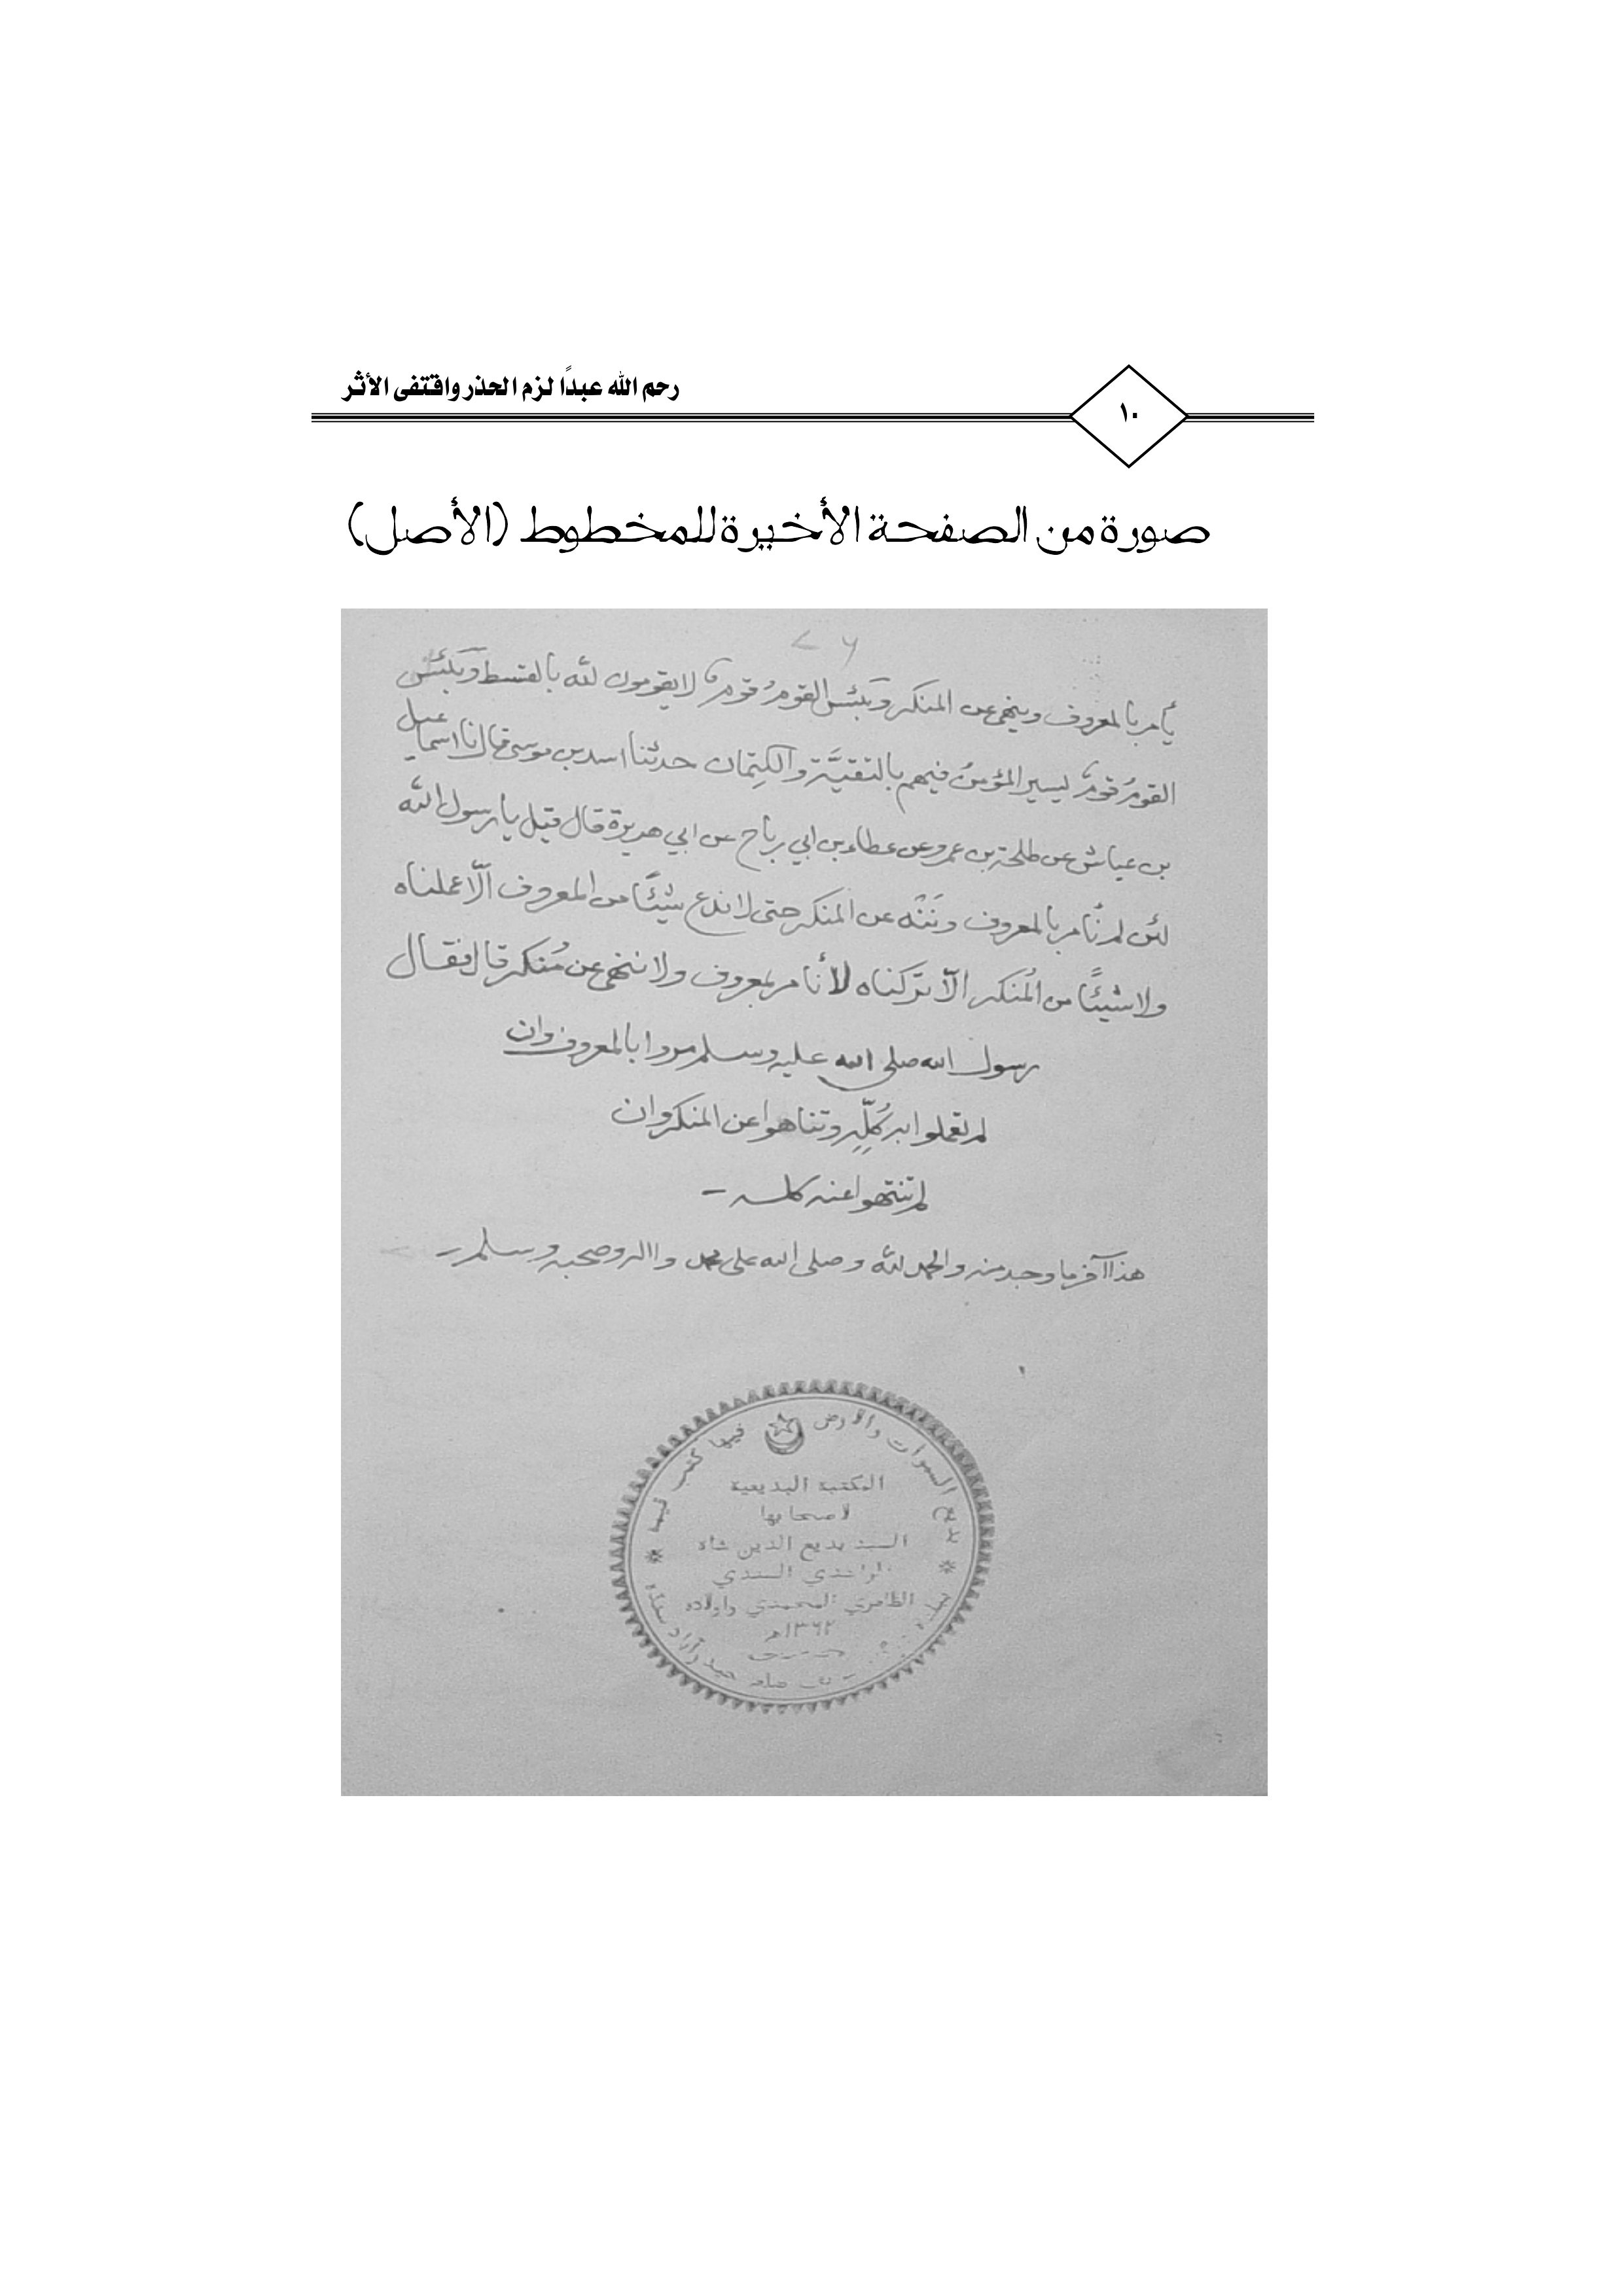 رحم الله عبدًا لزم الحذر واقتفى الأثر
١٠
صورة من الصفحة الأخيرة للمخطوط (الأصل)
٧٦
يأمر بالمعروف وينهى عن المنكر وَبَئِسَ القومُ قومٌ لا يقومون لله بالقسط وَبَئِسَ
القومُ قومٌ يسير المؤمنُ فيهم بالتقيَّة والكِتمان حدثنا اسد بن موسى قال نا اسماعيل
بن عياش عن طلحة بن عمرو عن عطاء بن ابي رباح عن ابي هريرة قال قيل يا رسول الله
لئن لم نأمر بالمعروف وننه عن المنكر حتى لا ندع شيئًا من المعروف الّا عملناه
ولا شيئًا من المُنكر الّا تركناه لا نأمر بمعروف ولا ننهى عن مُنكر قال فقال
رسول الله صلى الله عليه وسلم مروا بالمعروف وان
لم تعملوا به كُلِّه وتناهوا عن المنكر وان
لم تنتهوا عنه كله –
هذا آخر ما وجد منه والحمد لله وصلى الله على محمد واله وصحبه وسلم –
بديع السموات والارض
فيها كتب
المكتبة البديعية
لاصحابها
السيد بديع الدين شاه
الراشدي السندي
الظاهري المحمدي واولاده
١٣٦٢هم
حيدرآباد سنده